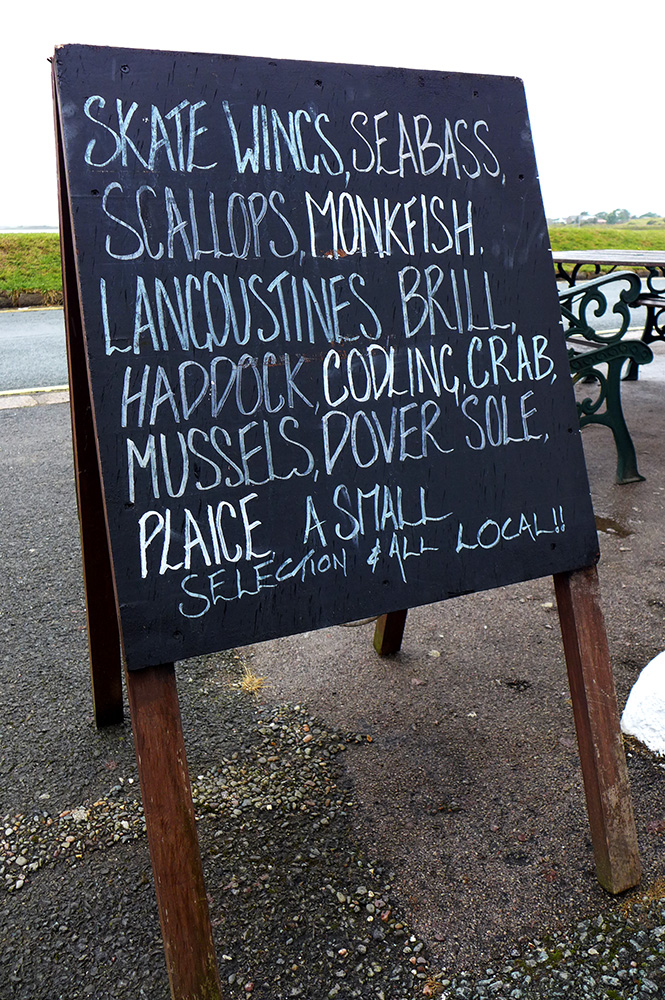 SKATE WINGS, SEABASS,
SCALLOPS, MONKFISH,
LANGOUSTINES, BRILL,
HADDOCK, CODLING, CRAB,
MUSSELS, DOVER SOLE,
PLAICE, A SMALL
SELECTION & ALL LOCAL!!